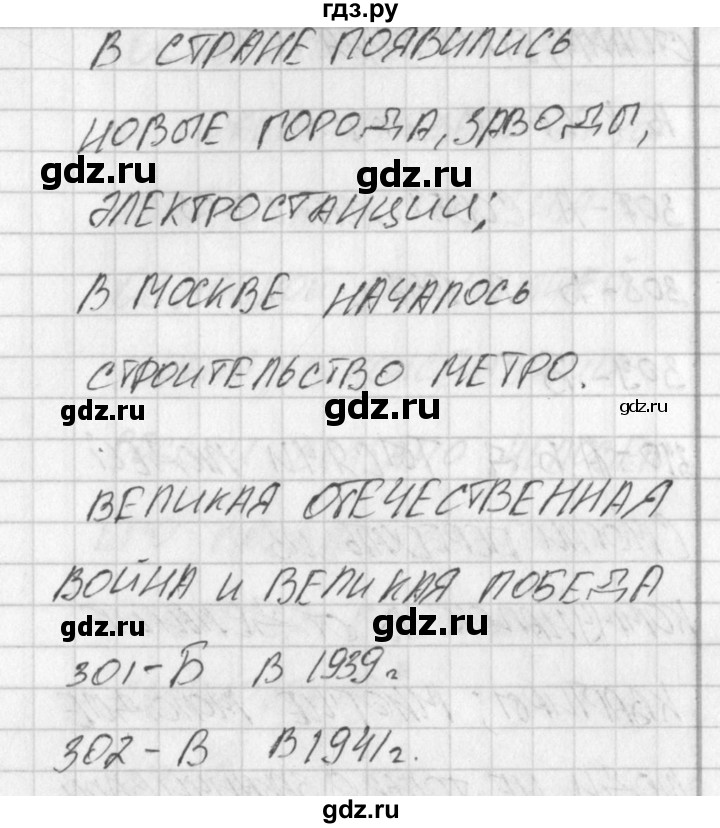 гдз.ру
В СТРАНЕ ПОЯВИЛИСЬ
НОВЫЕ ГОРОДА, ЗАВОДЫ,
gdz.ru gdz.ru
ЭЛЕКТРОСТАНЦИИ;
В МОСКВЕ НАЧАЛОСЬ
СТРОИТЕЛЬСТВО МЕТРО.
gdz.ru gdz.ru gdz.ru
ВЕЛИКАЯ ОТЕЧЕСТВЕННАЯ
ВОЙНА И ВЕЛИКАЯ ПОБЕДА
gdz.ru gdz.ru
301-Б В 1939 г.
302-В В 1941 г.
gdz.ru